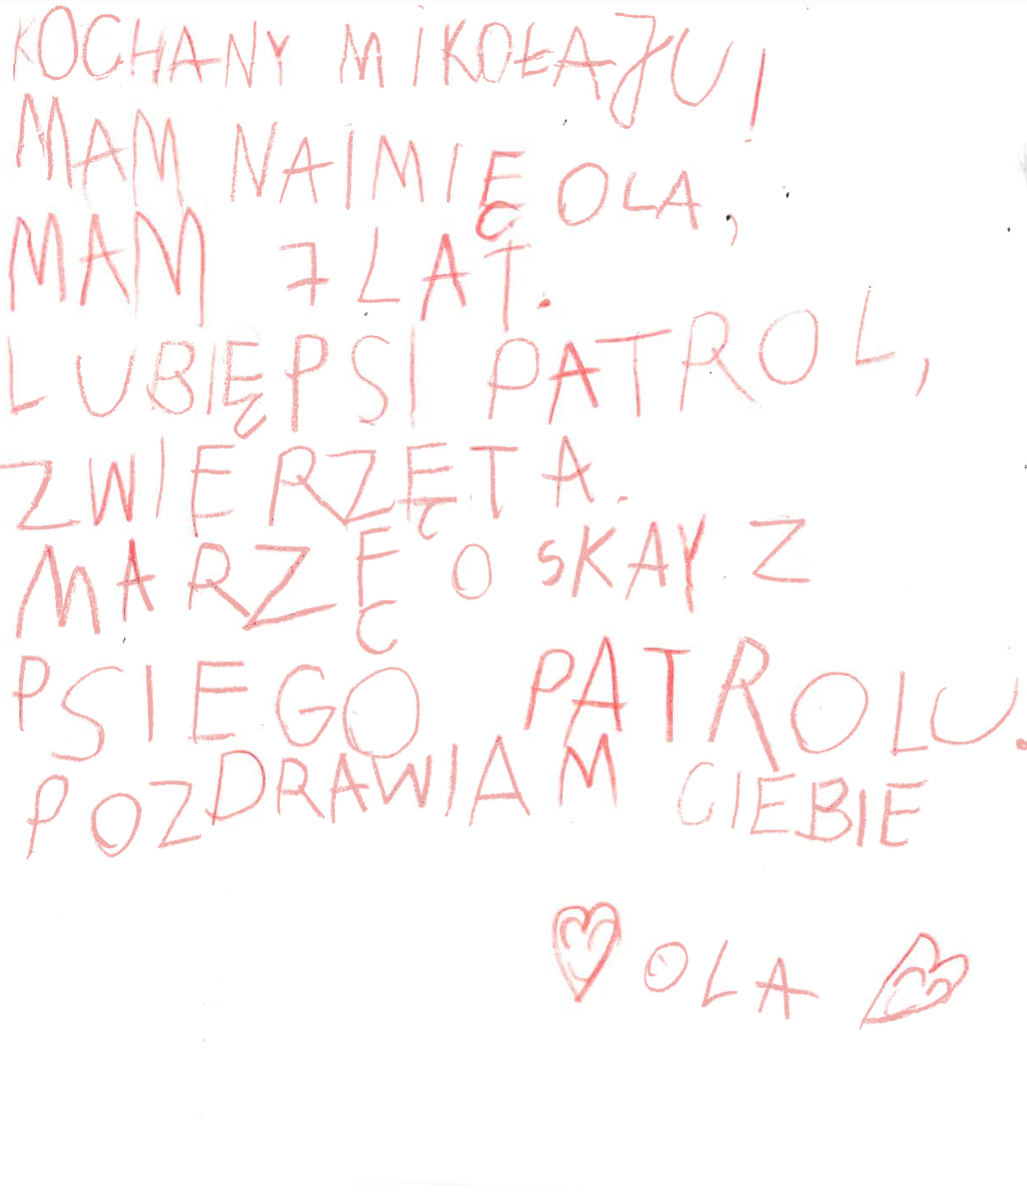 KOCHANY MIKOŁAJU!
MAM NAIMIĘ OLA,
MAM 7 LAT.
LUBIĘ PSI PATROL,
ZWIERZĘTA.
MARZĘ O SKAY Z
PSIEGO PATROLU.
POZDRAWIAM CIEBIE
OLA